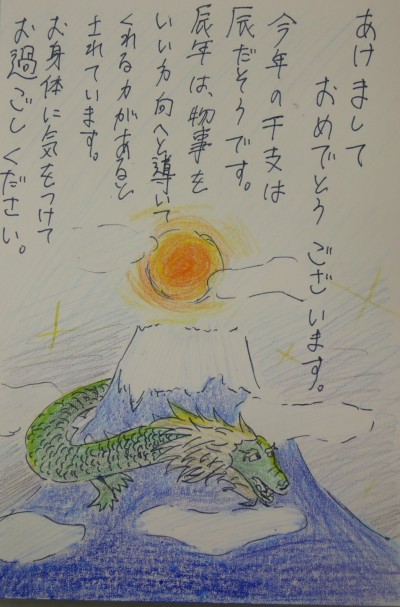 あけまして
おめでとうございます。
今年の干支は
辰だそうです。
辰年は、物事を
いい方向へと導いて
くれる力があると
されています。
お身体に気をつけて
お過ごしください。